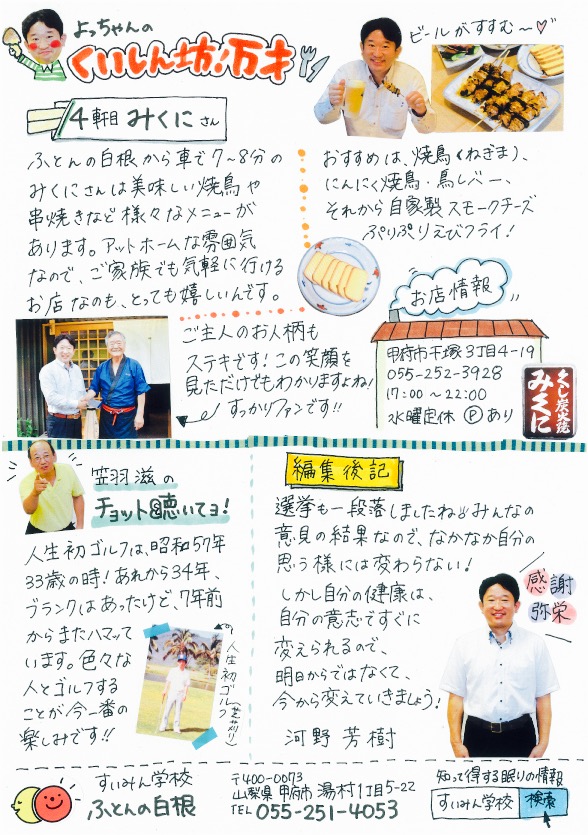 よっちゃんの
くいしん坊!万才
ビールがすすむ～♡
4軒目 みくにさん
ふとんの白根から車で7～8分の
みくにさんは美味しい焼鳥や
串焼きなど様々なメニューが
あります。アットホームな雰囲気
なので、ご家族でも気軽に行ける
お店なのも、とっても嬉しいんです。
おすすめは、焼鳥(ねぎま)、
にんにく焼鳥・鳥レバー、
それから自家製スモークチーズ
ぷりぷりえびフライ!
ご主人のお人柄も
ステキです!この笑顔を
見ただけでもわかりますよね!
すっかりファンです!!
お店情報
甲府市千塚3丁目4-19
055-252-3928
17:00～22:00
水曜定休 Ⓟあり
くし炭火焼
みくに
笠羽滋の
チョット聴いてヨ!
人生初ゴルフは、昭和57年
33歳の時!あれから34年、
ブランクはあったけど、7年前
からまたハマッて
います。色々な
人とゴルフする
ことが今一番の
楽しみです!!
人生初ゴルフ(芝刈り)
編集後記
選挙も一段落しましたね。みんなの
意見の結果なので、なかなか自分の
思う様には変わらない!
しかし自分の健康は、
自分の意志ですぐに
変えられるので、
明日からではなくて、
今から変えていきましょう!
河野芳樹
感謝
弥栄
すいみん学校
ふとんの白根
〒400-0073
山梨県甲府市湯村1丁目5-22
TEL 055-251-4053
知って得する眠りの情報
すいみん学校 検索